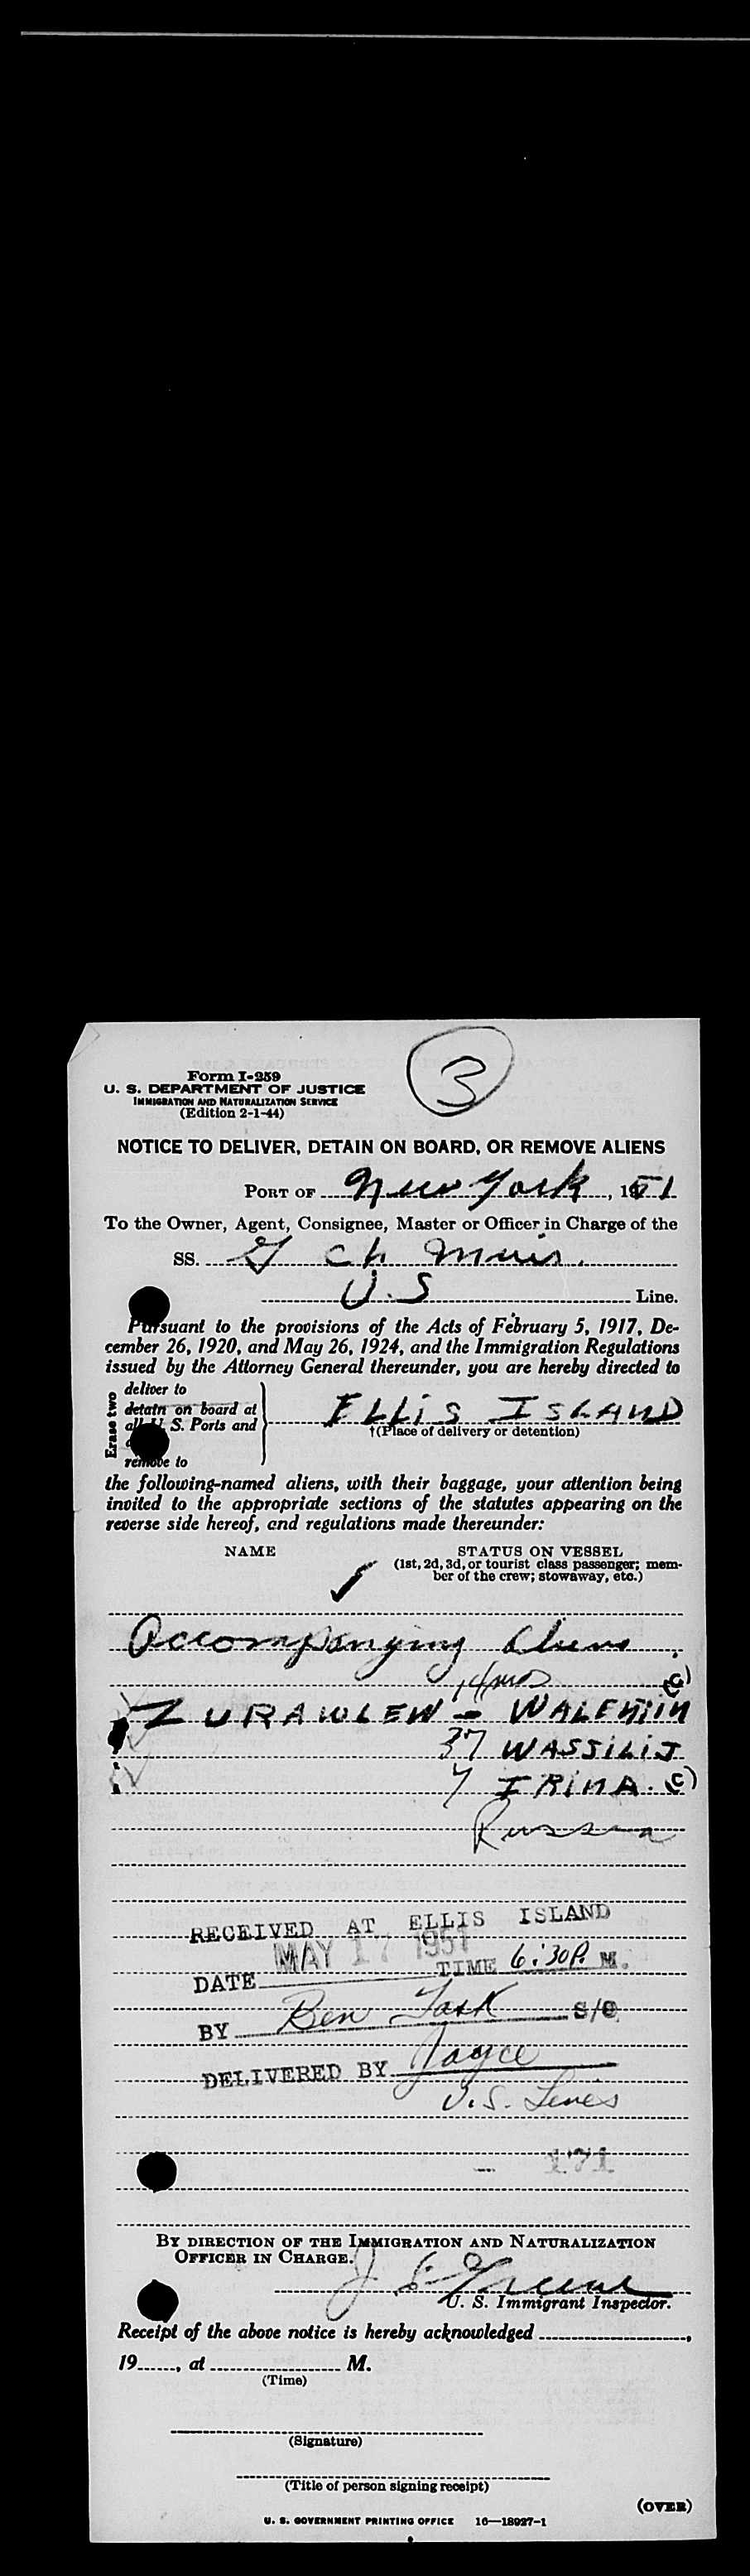 3
Form I-259
U. S. DEPARTMENT OF JUSTICE
IMMIGRATION AND NATURALIZATION SERVICE
(Edition 2-1-44)
NOTICE TO DELIVER, DETAIN ON BOARD, OR REMOVE ALIENS
PORT OF New York, 1951
To the Owner, Agent, Consignee, Master or Officer in Charge of the
SS. G Ch Muir.
U.S Line.
Pursuant to the provisions of the Acts of February 5, 1917, De-
cember 26, 1920, and May 26, 1924, and the Immigration Regulations
issued by the Attorney General thereunder, you are hereby directed to
Erase two
deliver to
detain on board at
all U. S. Ports and
remove to
ELLIS ISLAND
†(Place of delivery or detention)
the following-named aliens, with their baggage, your attention being
invited to the appropriate sections of the statutes appearing on the
reverse side hereof, and regulations made thereunder:
NAME STATUS ON VESSEL
(1st, 2d, 3d, or tourist class passenger; mem-
ber of the crew; stowaway, etc.)
Accompanying Aliens
14mos (c)
ZURAWLEW - WALENTIN
37 WASSILIJ
7 IRINA. (c)
Russia
RECEIVED AT ELLIS ISLAND
DATE MAY 17 1951 TIME 6:30P. M.
BY Ben S/O
DELIVERED BY Joyce
U.S. Lines
171
BY DIRECTION OF THE IMMIGRATION AND NATURALIZATION
OFFICER IN CHARGE.
J Greene
U. S. Immigrant Inspector.
Receipt of the above notice is hereby acknowledged ,
19 , at M.
(Time)
(Signature)
(Title of person signing receipt)
(OVER)
U. S. GOVERNMENT PRINTING OFFICE 16—18927-1